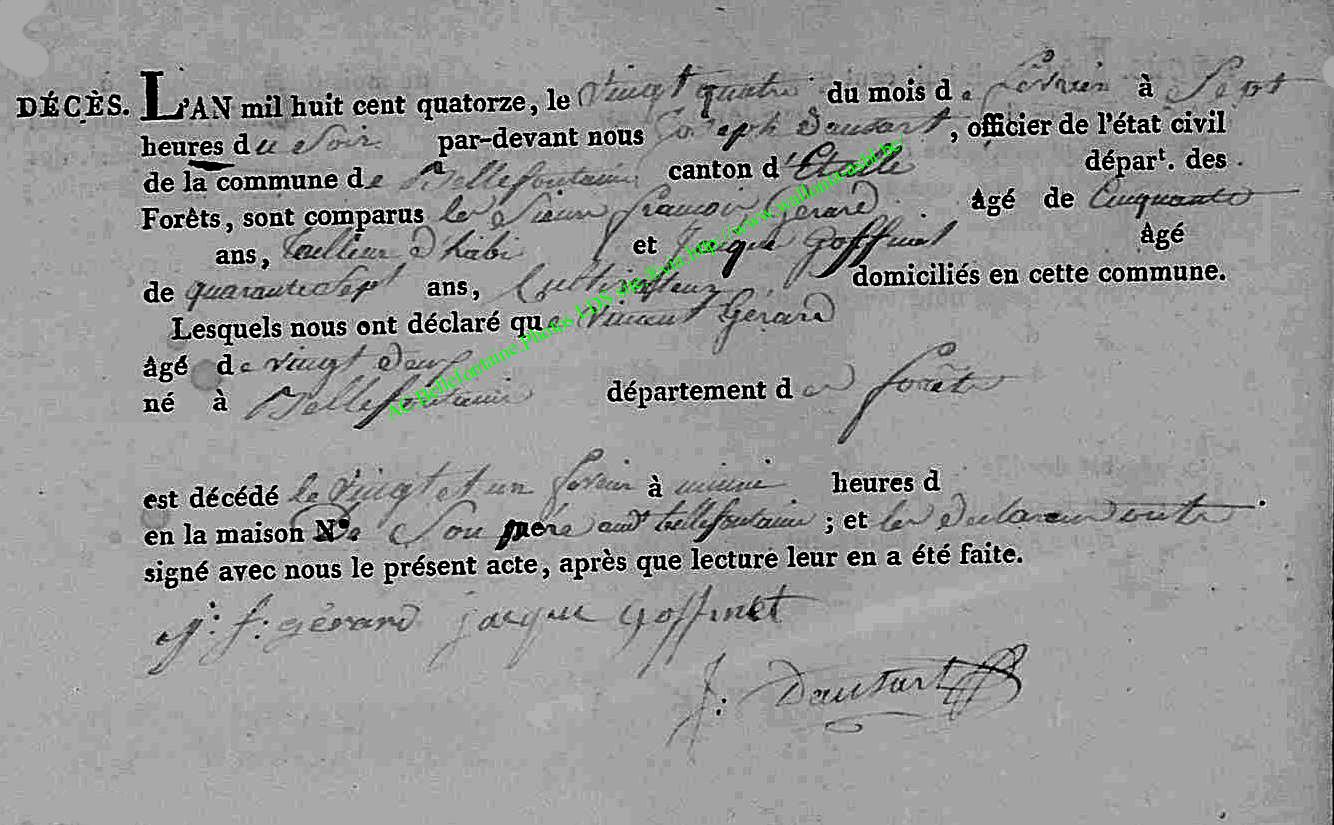 DÉCÈS. L'AN mil huit cent quatorze, le vingt quatre du mois de fevrier à Sept
heures du Soir par-devant nous Joseph Dausart, officier de l'état civil
de la commune de Bellefontaine canton d'Etalle départ. des
Forêts, sont comparus les Sieurs françois Gerard âgé de Cinquante
ans, tailleur d'habi et Jacque Goffinet âgé
de quarante Sept ans, Cultivateur domiciliés en cette commune.
Lesquels nous ont déclaré que Vincent Gerard
âgé de vingt deux
né à Bellefontaine département des forêts
est décédé le vingt et un fevrier à minuit heures d
en la maison de Son père audt Bellefontaine ; et les declarants ont
signé avec nous le présent acte, après que lecture leur en a été faite.
j: f: gérard jacque goffinet
J: Dausart
AC Bellefontaine Photos LDS via http://www.wallonia-asbl.be/